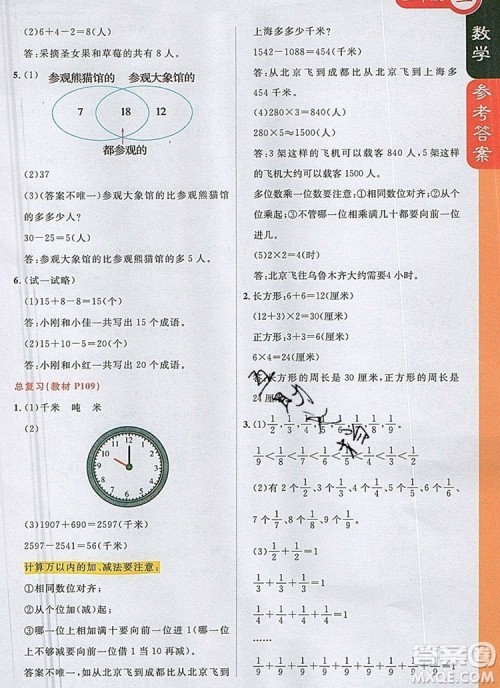 (2)6+4-2=8(人)
答:采摘圣女果和草莓的共有8人。
5.(1)
参观熊猫馆的 参观大象馆的
7 18 12
都参观的
(2)37
(3)(答案不唯一)参观大象馆的比参观熊猫馆
的多多少人?
30-25=5(人)
答:参观大象馆的比参观熊猫馆的多5人。
6.(试一试略)
(1)15+8-8=15(个)
答:小刚和小佳一共写出15个成语。
(2)15+10-5=20(个)
答:小刚和小红一共写出20个成语。
总复习(教材 P109)
1.(1)千米 吨 米
(2)
(3)1907+690=2597(千米)
2597-2541=56(千米)
计算万以内的加、减法要注意:
①相同数位对齐;
②从个位加(减)起;
③哪一位相加满十要向前一位进一,哪一位
不够减要向前一位借一。
答案不唯一,如从北京飞到成都比从北京飞到
上海多多少千米?
1542-1088=454(千米)
答:从北京飞到成都比从北京飞到上海多
454千米。
(4)280×3=840(人)
280×5≈1500(人)
答:3架这样的飞机可以载客840人,5架这样的
飞机大约可以载客1500人。
多位数乘一位数要注意:①相同数位对齐;②从个
位乘起;③不管哪一位相乘满几十都要向前一位
进几。
(5)2×2=4(时)
答:北京飞往乌鲁木齐大约需要4小时。
2.长方形:6+6=12(厘米)
(12+3)×2=30(厘米)
正方形:3+3=6(厘米)
6×4=24(厘米)
答:长方形的周长是30厘米,正方形的周长是
24厘米。
3.(1)1/2,1/3,1/4,1/5,1/6,1/7,1/8,1/9
1/9<1/8<1/7<1/6<1/5<1/4<1/3<1/2
(2)2个1/2,3个1/3,4个1/4,5个1/5,6个1/6,
7个1/7,8个1/8,9个1/9
1/3+1/3+1/3=1
1/4+1/4+1/4+1/4=1
……
1/9+1/9+1/9+1/9+1/9+1/9+1/9+1/9+1/9=1
数学
参考答案